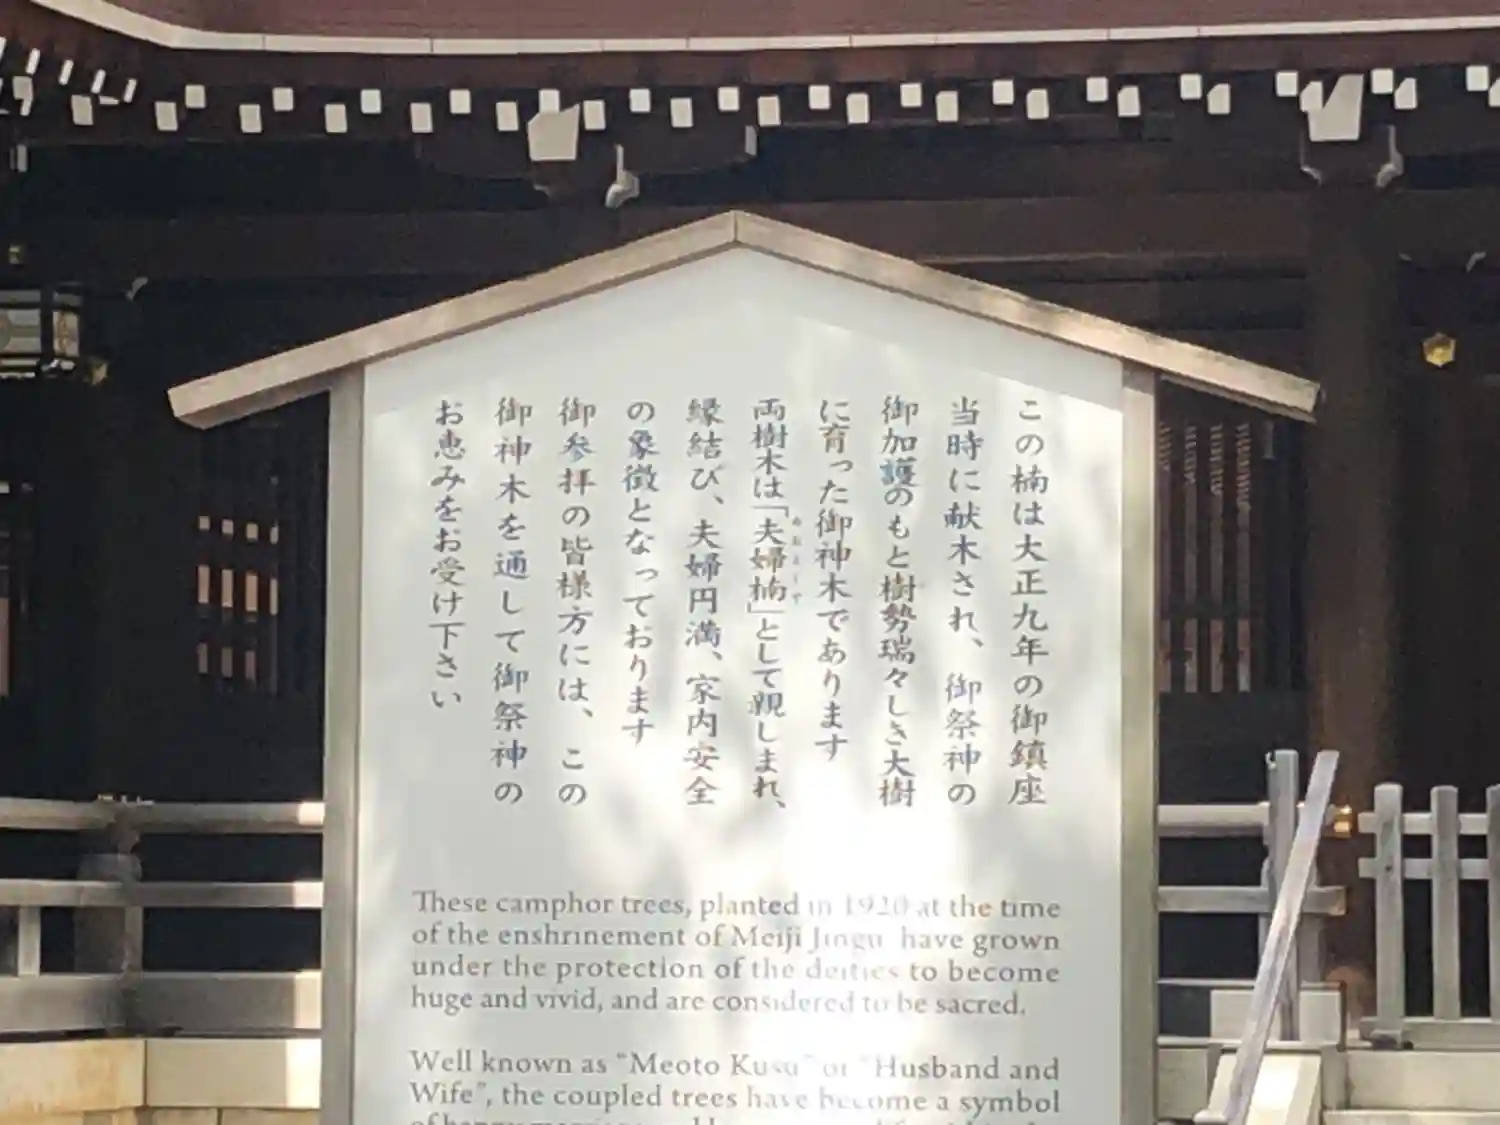 この楠は大正九年の御鎮座
当時に献木され、御祭神の
御加護のもと樹勢瑞々しき大樹
に育った御神木であります
両樹木は「夫婦楠」として親しまれ、
めおとくす
縁結び、夫婦円満、家内安全
の象徴となっております
御参拝の皆様方には、この
御神木を通して御祭神の
お恵みをお受け下さい
These camphor trees, planted in 1920 at the time
of the enshrinement of Meiji Jingu have grown
under the protection of the deities to become
huge and vivid, and are considered to be sacred.
Well known as “Meoto Kusu” or “Husband and
Wife”, the coupled trees have become a symbol
of happy